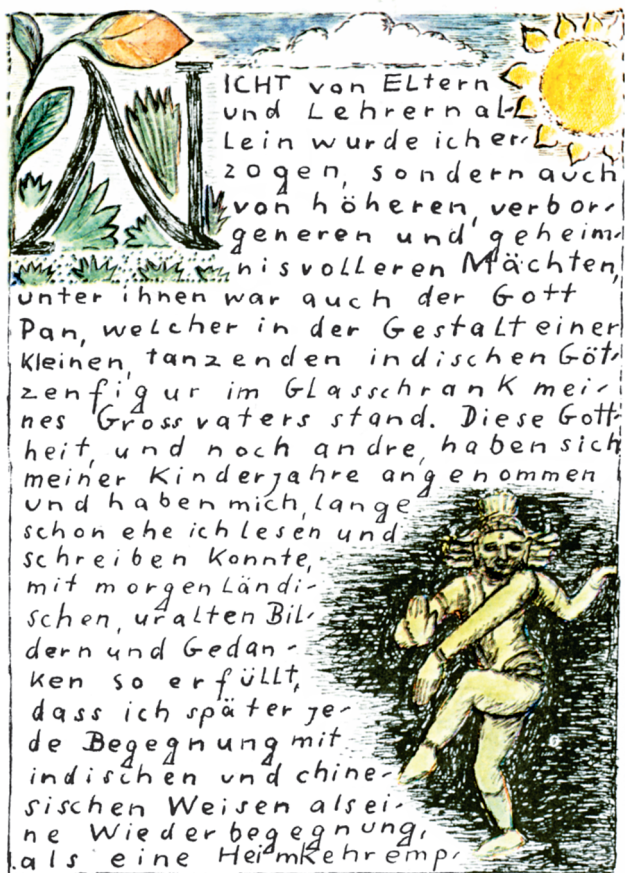 NICHT von Eltern
und Lehrern al-
lein wurde ich er-
zogen, sondern auch
von höheren, verbor-
generen und geheim-
nisvolleren Mächten,
unter ihnen war auch der Gott
Pan, welcher in der Gestalt einer
kleinen, tanzenden indischen Göt-
zenfigur im Glasschrank mei-
nes Grossvaters stand. Diese Gott-
heit, und noch andre, haben sich
meiner Kinderjahre angenommen
und haben mich, lange
schon ehe ich lesen und
schreiben konnte,
mit morgenländi-
schen, uralten Bil-
dern und Gedan-
ken so erfüllt,
dass ich später je-
de Begegnung mit
indischen und chine-
sischen Weisen als ei-
ne Wiederbegegnung,
als eine Heimkehr emp-